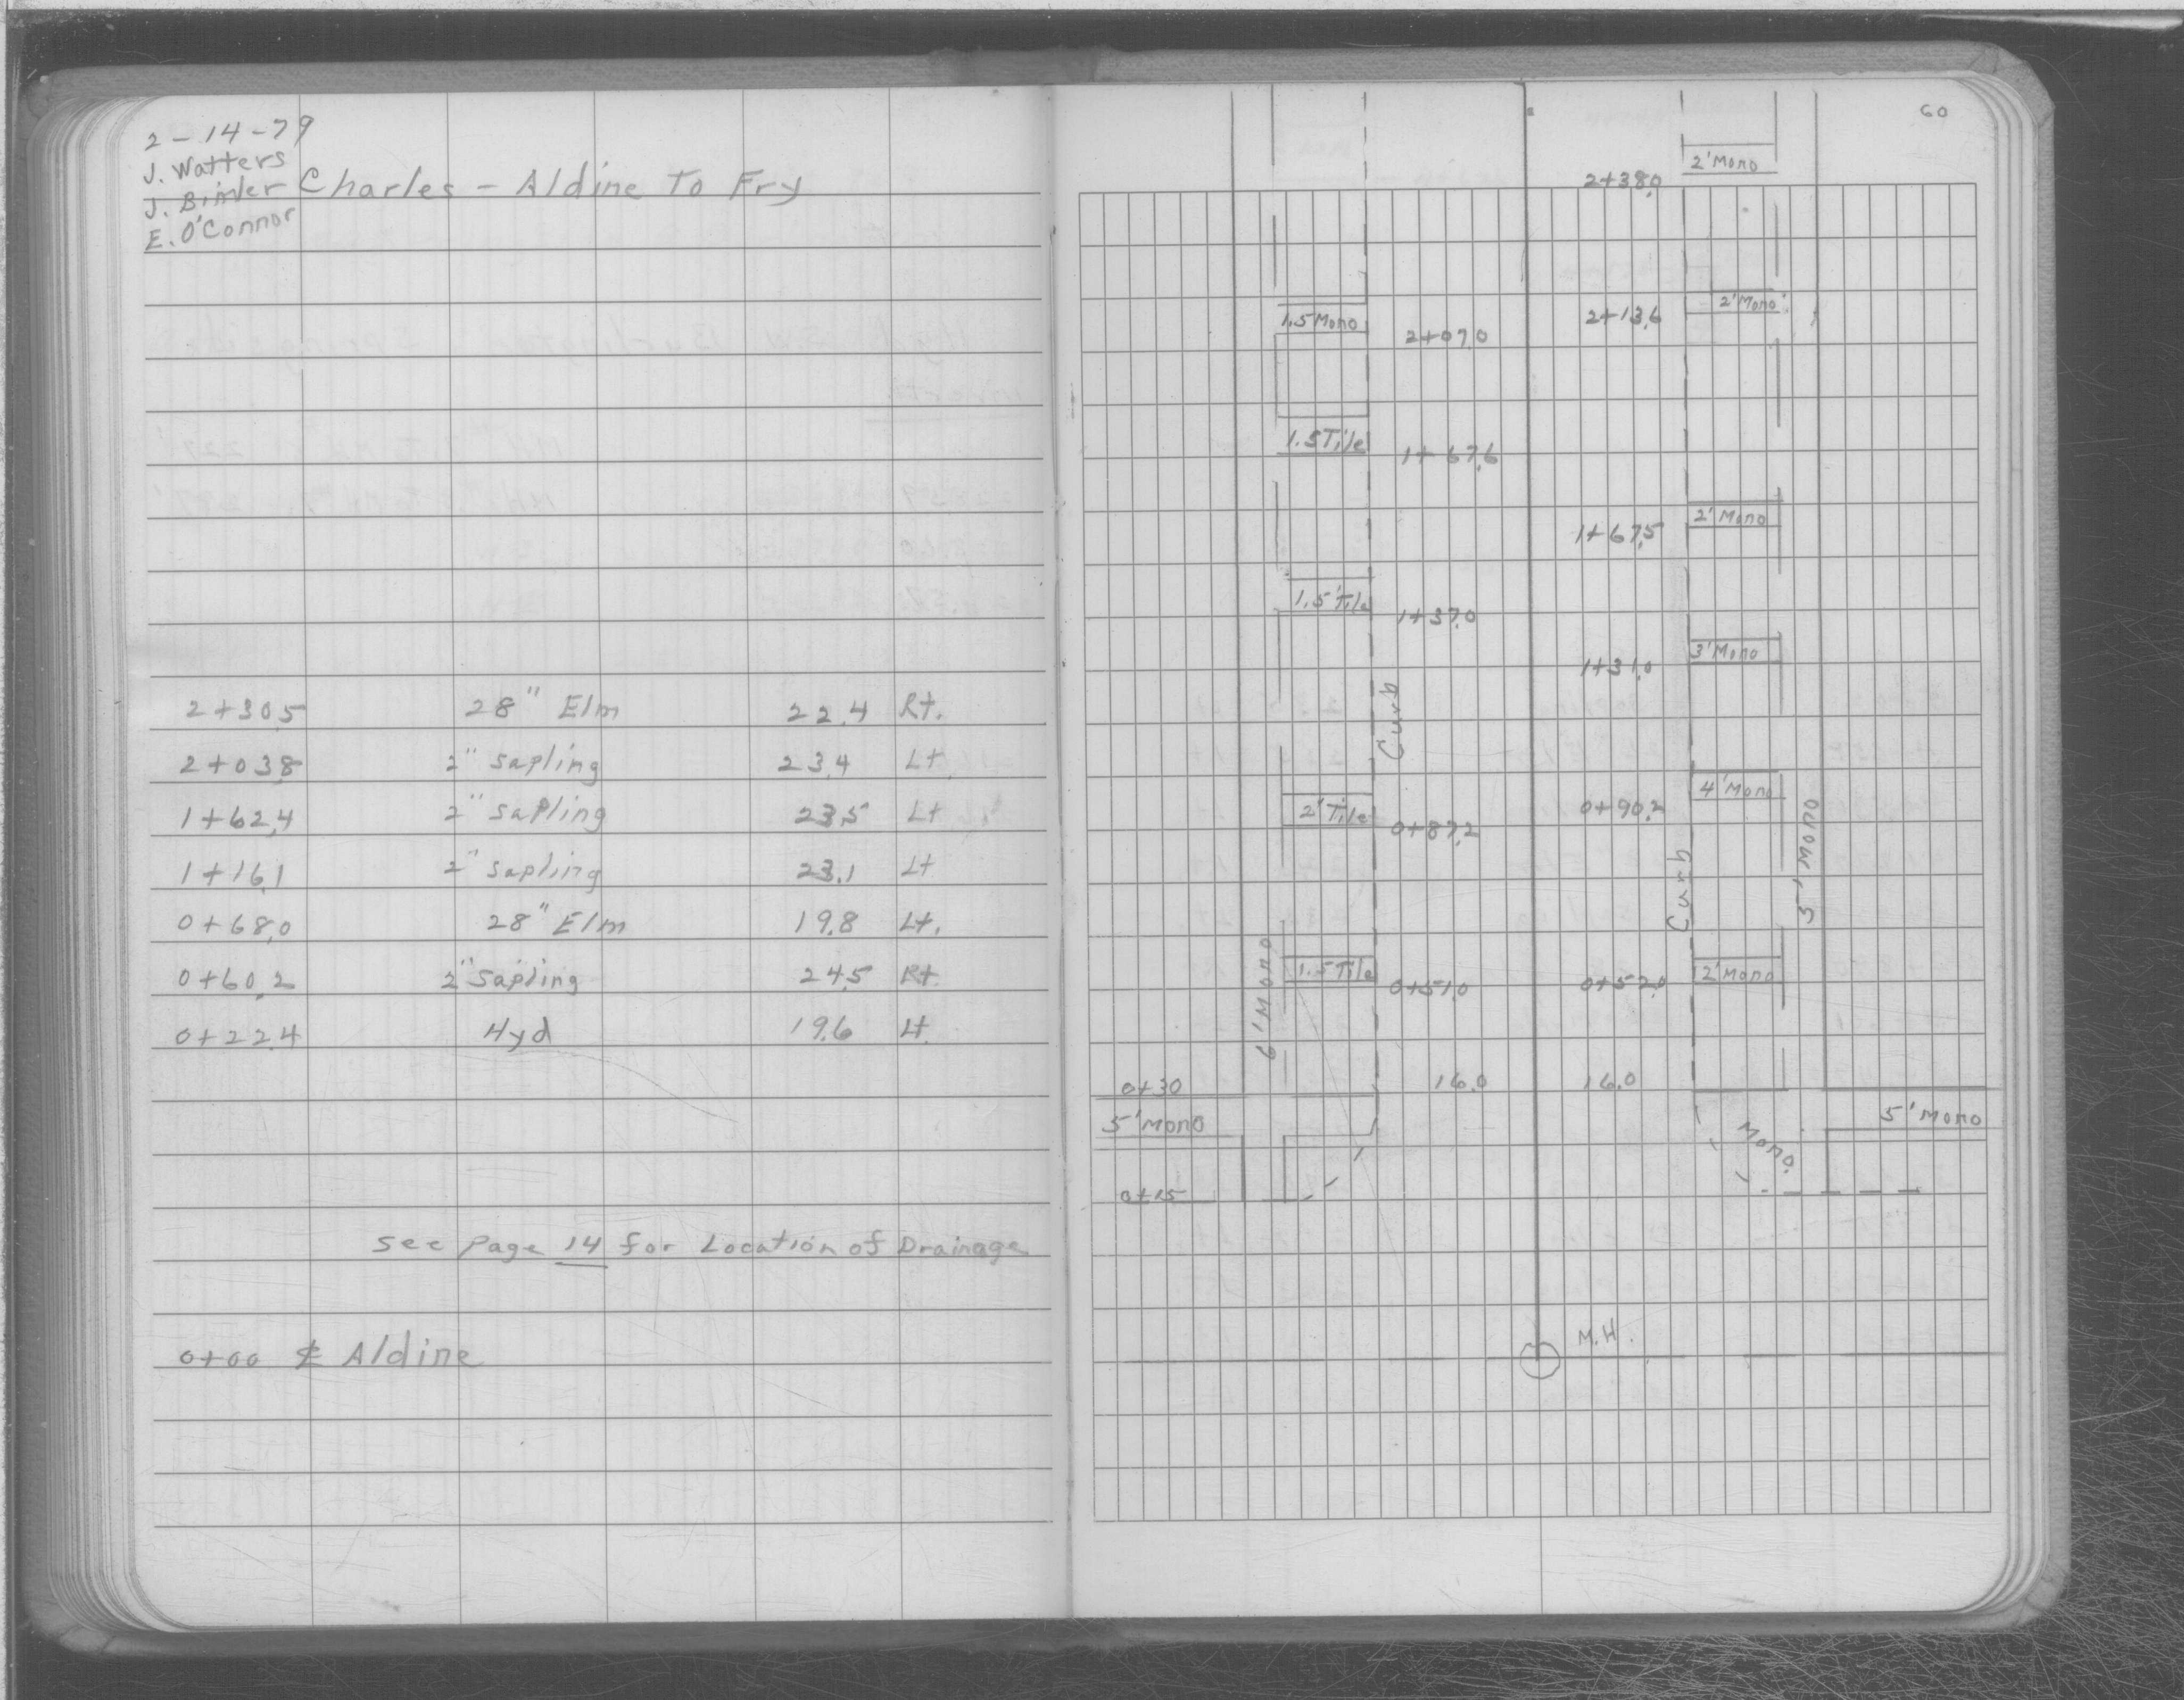 2-14-79
J. Watters
J. Binder
E. O'Connor
Charles - Aldine To Fry
2+30.5 28" Elm 22.4 Rt.
2+03.8 2" Sapling 23.4 Lt.
1+62.4 2" Sapling 23.5 Lt
1+16.1 2" Sapling 23.1 Lt
0+68.0 28" Elm 19.8 Lt.
0+60.2 2" Sapling 24.5 Rt.
0+22.4 Hyd 19.6 Lt.
See Page 14 for Location of Drainage
0+00 ℄ Aldine
60
2' Mono
2+38.0
2' Mono
2+13.6
1.5 Mono
2+07.0
1.5 Tile
1+67.6
2' Mono
1+67.5
1.5' Tile
1+37.0
3' Mono
1+31.0
Curb
4' Mono
0+90.2
2' Tile
0+87.2
Curb
5' Mono
6' Mono
1.5 Tile
0+51.0
0+52.0
2' Mono
0+30
16.0
16.0
5' Mono
Mono
5' Mono
0+15
M.H.